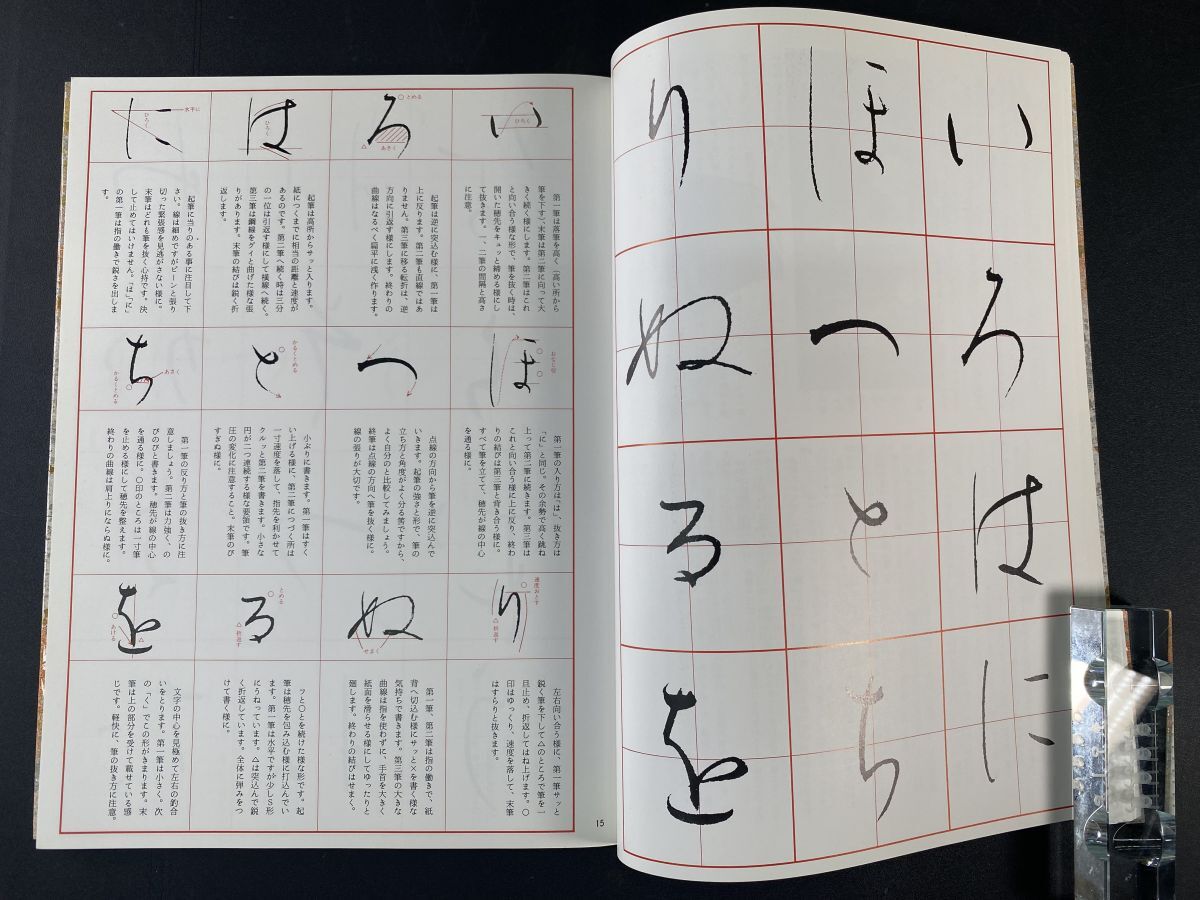 い
ろ
は
に
ほ
へ
と
ち
り
ぬ
る
を
い
ひろく
ろ
とめる
あさく
は
ひろく
に
水平に
ひろく
第一筆は落筆を高く(高い所から
筆を下す)、末筆は第二筆に向って大
きく続く様にします。第二筆はこれ
と向い合う様な形で、筆を抜く時は、
開いた穂先をキュッと締める様にし
て抜きます。一、二筆の間隔と高さ
に注意。
起筆は逆に突込む様に、第一筆は
上に反ります。第二筆も直線ではあ
りません。第三筆に移る転折は、逆
方向に引返す様にします。終わりの
曲線はなるべく扁平に浅く作ります。
起筆は高所からサッと入ります。
紙につくまでに相当の距離と速度が
あるのです。第二筆へ続く時は三分
の一位は引返す様にして横線へ続く。
第三筆は鋼線をグイと曲げた様な張
りがあります。末筆の結びは鋭く折
返します。
起筆に当りのある事に注目して下
さい。線は細めですがピーンと張り
切った緊張感を見逃がさない様に。
末筆はどれも筆を抜く心持です。決
して止めてはいけません。「は」「に」
の第一筆は指の働きで鋭さを出しま
す。
ほ
へ
と
かるくとめる
ち
あさく
かるくとめる
第一筆の入り方は「は」、抜き方は
「に」と同じ。その余勢で高く跳ね
上って第二筆に続きます。第三筆は
これと向い合う様に上に反り、終わ
りの結びは第三筆と背き合う様に。
すべて筆を立てて、穂先が線の中心
を通る様に。
点線の方向から筆を逆に突込んで
いきます。起筆の強さと形で、筆の
立ち方と角度がよく分る筈ですから、
よく自分のと比較してみましょう。
終筆は点線の方向へ筆を抜く様に。
線の張りが大切です。
小ぶりに書きます。第一筆はすく
い上げる様に、第二筆につづく所は
一寸速度を落して、指先を利かせて
クルッと第二筆を書きます。小さな
円が二つ連続する様な要領です。筆
圧の変化に注意すること。末筆のび
すぎぬ様に。
第一筆の反り方と筆の抜き方に注
意しましょう。第二筆は力強く、の
びのびと書きます。穂先が線の中心
を通る様に。〇印のところは一寸筆
を止める様にして穂先を整えます。
終わりの曲線は肩上りにならぬ様に。
り
速度おとす
折返す
ぬ
せまく
る
とめる
折返す
を
あける
左右向い合う様に、第一筆サッと
鋭く筆を下して△のところで筆を一
旦止め、折返してはね上げます。〇
印はゆっくり、速度を落して、末筆
はすらりと抜きます。
第一筆、第二筆は指の働きで、紙
背へ切込む様にサッと×を書く様な
気持ちで書きます。第三筆の大きな
曲線は指を使わずに、手首を大きく
紙面を滑らせる様にしてゆったりと
廻します。終わりの結びはせまく。
ッと〇とを続けた様な形です。起
筆は穂先を包み込む様に打込んでい
ます。第一筆は水平ですが少しS形
にうねっています。△は突込んで鋭
く折返しています。全体に弾みをつ
けて書く様に。
文字の中心を見極めて左右の釣合
いをとります。第一筆は小さく。次
の「く」でこの形がきまります。末
筆は上の部分を受けて載せている感
じです。軽快に、筆の抜き方に注意。
15